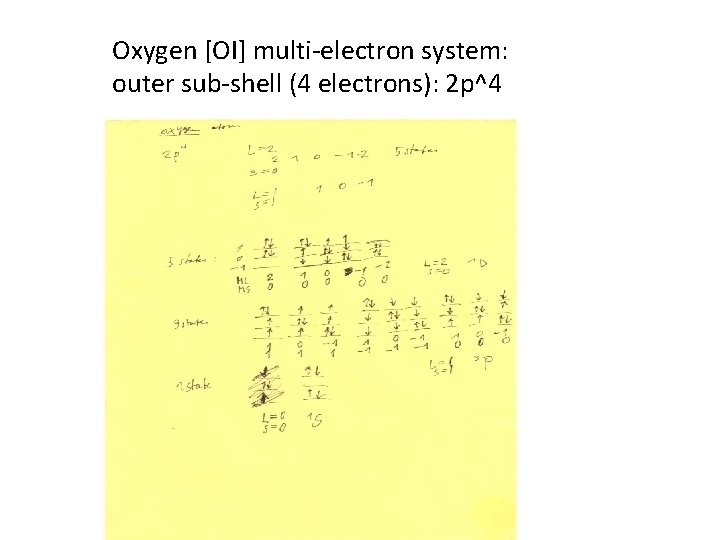 Oxygen [OI] multi-electron system:
outer sub-shell (4 electrons): 2p^4
oxygen atom
2p⁴ L=2 5 states
2 1 0 -1 -2
S=0
L=1 1 0 -1
S=1
5 states: 1 ↑↓ ↑↓ ↑ ↑
0 ↑↓ ↑ ↑↓ ↑↓
-1 ↓ ↓ ↓ L=2 ¹D
ML 2 1 0 -1 -2 S=0
MS 0 0 0 0 0
9 states ↑↓ ↑ ↑ ↑↓ ↓ ↓ ↑↓ ↓ ↓
↑ ↑↓ ↑ ↓ ↑↓ ↓ ↓ ↑↓ ↑
↑ ↑ ↑↓ ↓ ↓ ↑↓ ↑ ↑ ↑↓
1 0 -1 1 0 -1 1 0 -1
1 1 1 -1 -1 -1 0 0 0
L=1 ³P
S=1
1 state ↑↓
↑↓
L=0 ¹S
S=0